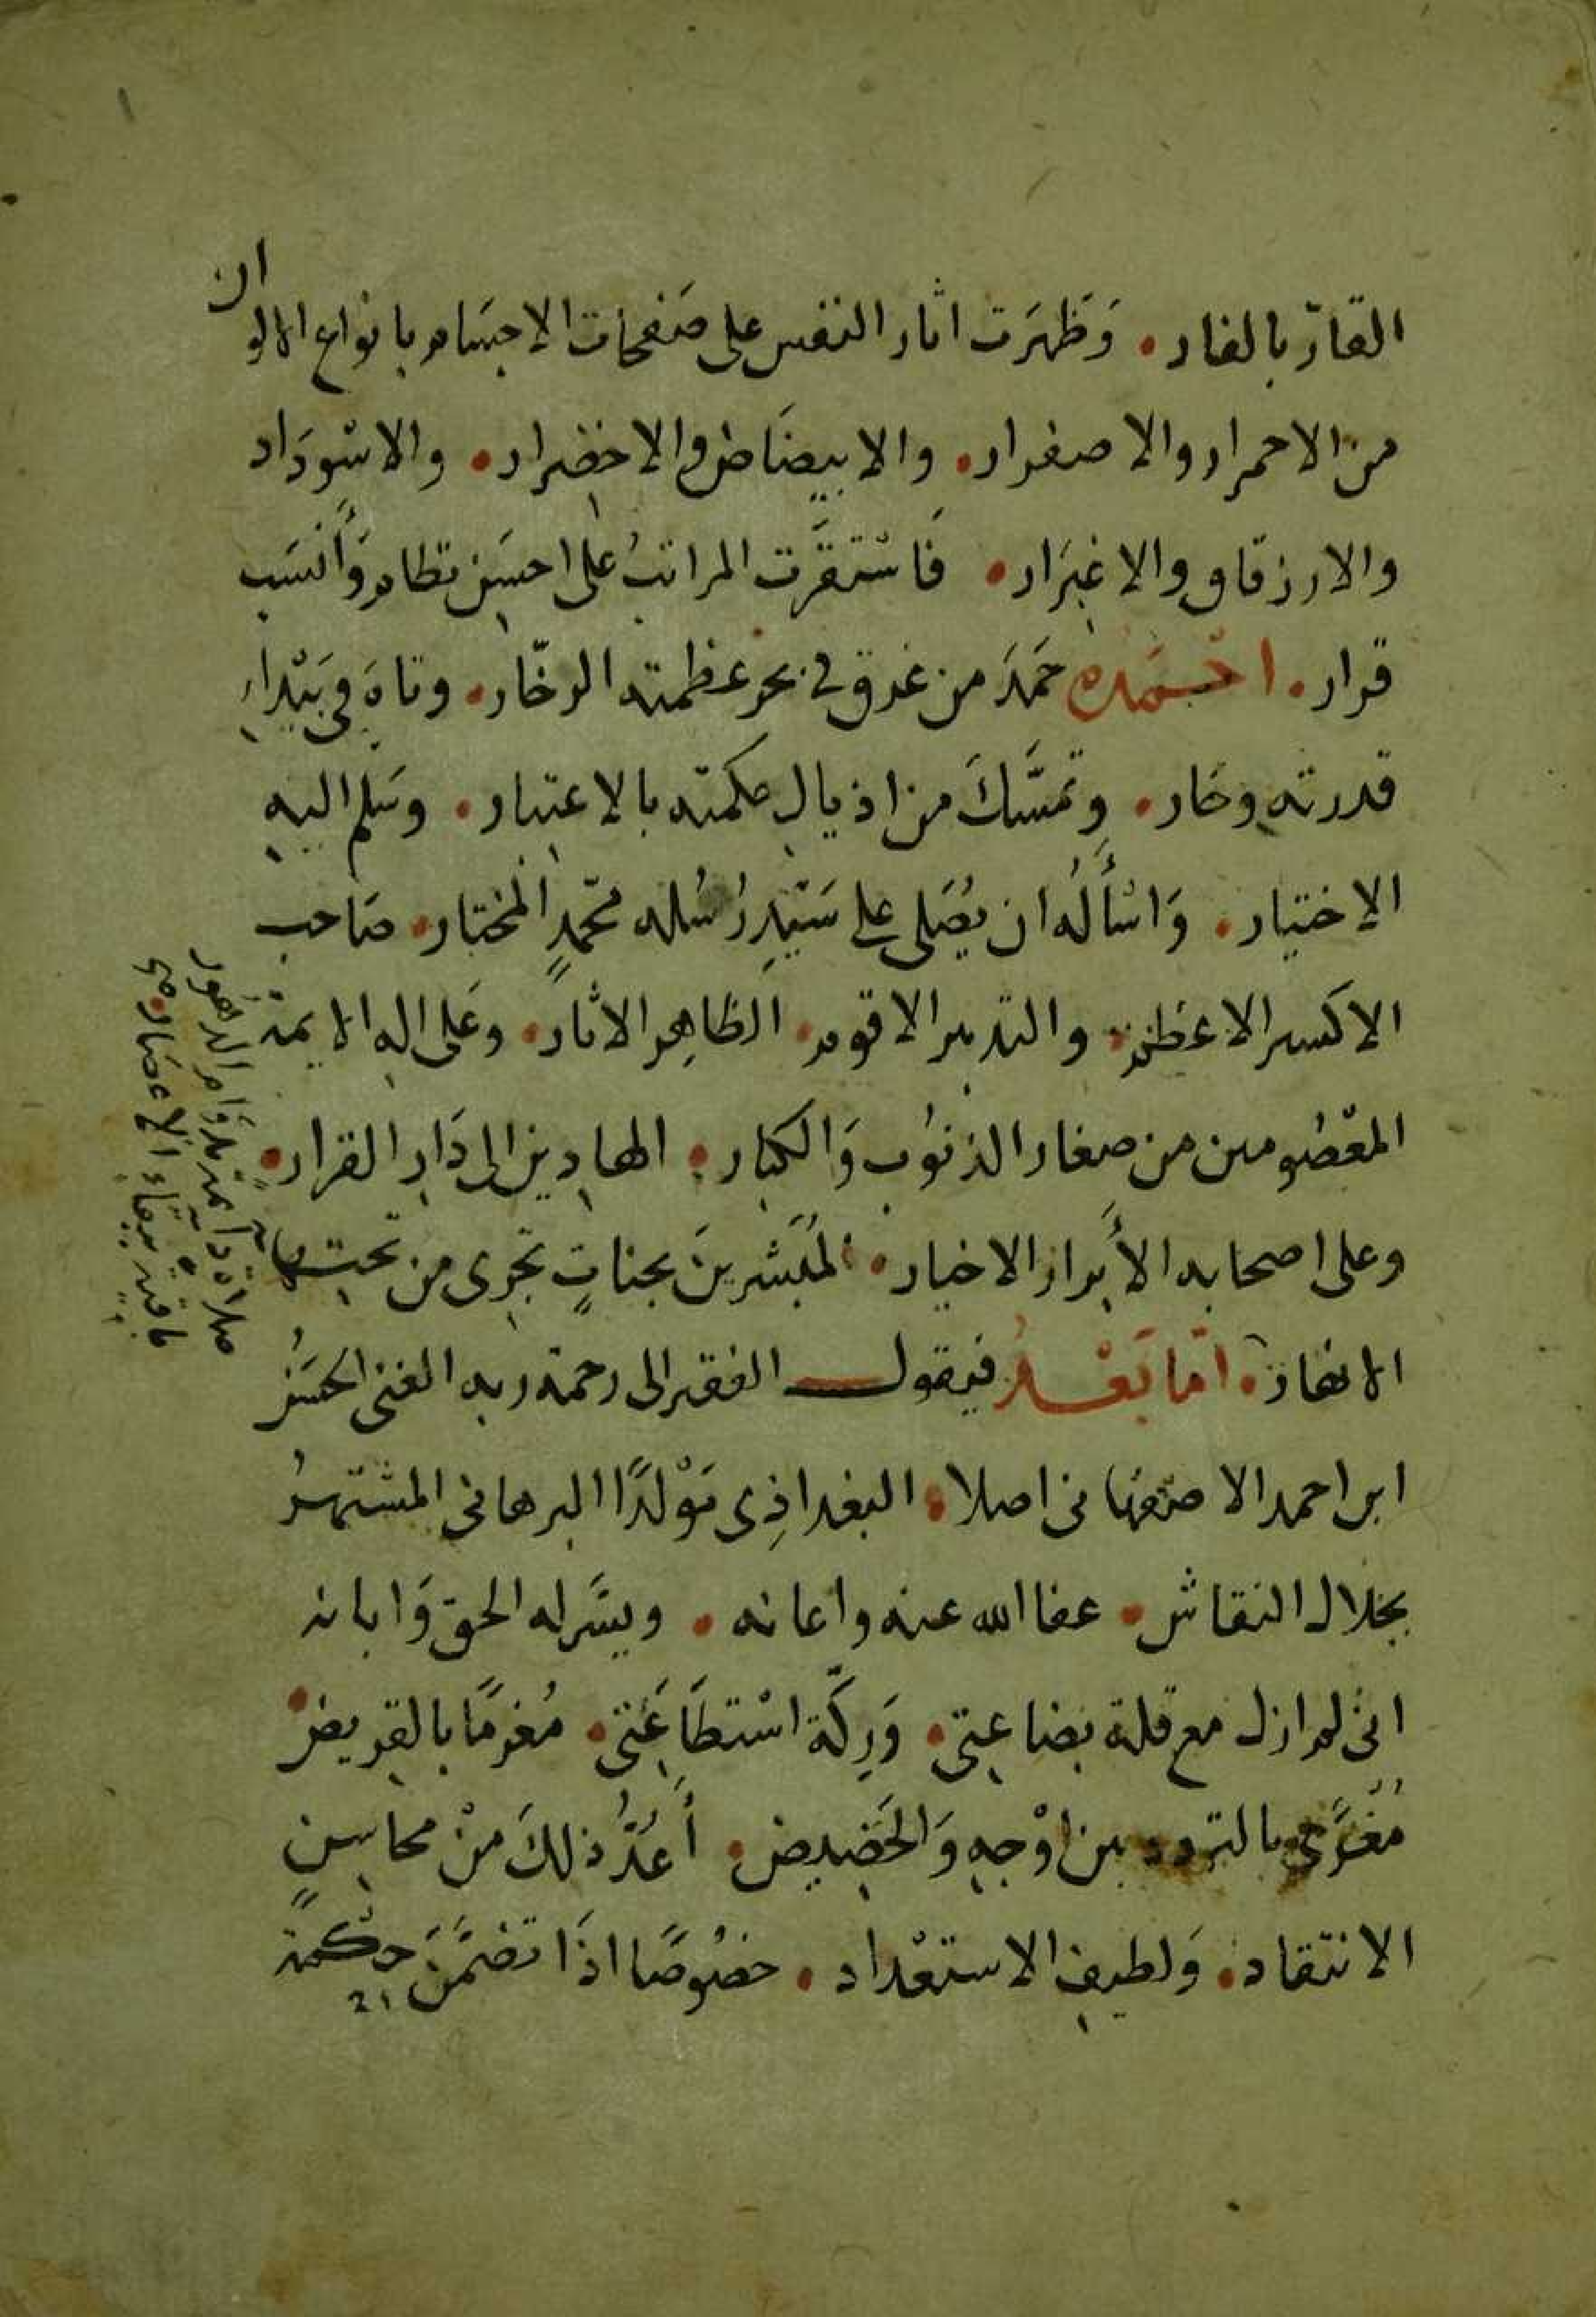 القارّ بالفار . وَظَهَرَت اثار النفس على صَفحَات الاجسَام بانواع الالوان
من الاحمرار والاصفرار . والابيضَاض والاخضرار . والاسْودَاد
والارزقاق والاغبرَار . فَاسْتقرَّت المراتبُ على احسَن نظام وَأنسَب
قرار . احْمَدهُ حَمدَ من غرق في بحر عظمته الزخّار . وتاهَ في بَيْدَاءِ
قدرته وحَار . وتمسَّكَ من اذيالِ حكمته بالاعتبار . وسَلم اليهِ
الاختيار . وَاسْأَلُه ان يُصَلى على سَيّدِ رُسُله محمّدٍ المختار . صَاحب
الاكسير الاعظم . والتدبير الاقوم . الظاهِر الاثار . وعَلى الهِ الايمةْ
المعْصُومين من صغار الذنوُب وَالكبار . الهادِين الى دَارِ القرار .
وعلى اصحابه الأَبرار الاخيار . المُبَشرينَ بجناتٍ تجرى من تحتها
الانهار . امّا بَعْدُ فيقول الفقير الى رحمة ربه الغنى الحسَنُ
ابن احمد الاصفهانى اصلا . البغداذِى مَوْلدًا البرهانى المشتهرُ
بجلال النقاش . عفا الله عنه واعانه . ويسَّر له الحق وَابانه
انى لم ازل مع قلة بضاعتى . وَرِكّة اسْتطَاعَتى . مُغرمًا بالقريض .
مُغْرًى بالتردد بين اوْجِهِ وَالحَضيض . أَعُدُّ ذلكَ منْ محاسِنِ
الانتقاد . وَلطيفِ الاستعْداد . خصُوصًا اذَا تضمَّنَ حكمةً
صلاة دَآئمة بدَوَام الدهُور
باقية ببقاءِ الاعصار صح